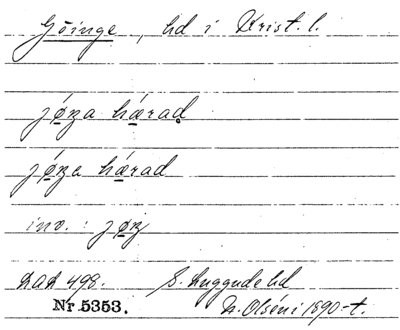 Göinge, hd i Krist. l.
jøza hærad
jøza hærad
inv.: jøz
DAA 498. S. Luggude hd
Nr 5353. N. Olséni 1890-t.